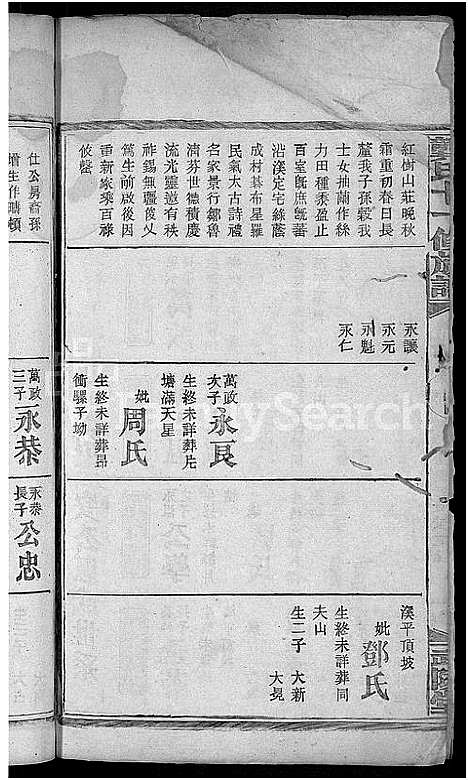 紅樹山莊晚秋
霜重初春日長
蘆我子孫穀我
士女抽繭作絲
力田種黍盈止
百室旣庶旣蕃
沿溪定宅綠蔭
成村碁布星羅
民氣太古詩禮
名家景行鄒魯
濟芬世德積慶
流光靈邀有秩
祚錫無疆後乂
篤生前啟後因
重新家乘百祿
攸罄
永讓
永元
永魁
永仁
萬政
次子
永良
生終未詳葬片
塘滿天星
妣
周氏
生終未詳葬昂
衝騾子坳
溪平頂坡
妣
鄧氏
生終未詳葬同
夫山
生二子
大新
大晃
氏十一修族譜
仕公房裔孫
萬政
三子
永恭
永恭
長子
公忠